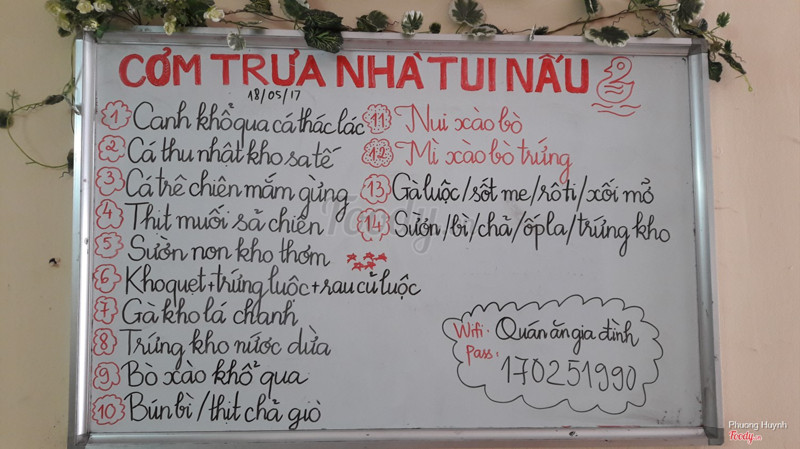 CƠM TRƯA NHÀ TUI NẤU
18/05/17
1 Canh khổ qua cá thác lác
2 Cá thu nhật kho sa tế
3 Cá trê chiên mắm gừng
4 Thịt muối sả chiên
5 Sườn non kho thơm
6 Kho quẹt + trứng luộc + rau củ luộc
7 Gà kho lá chanh
8 Trứng kho nước dừa
9 Bò xào khổ qua
10 Bún bì / thịt chả giò
11 Nui xào bò
12 Mì xào bò trứng
13 Gà luộc / sốt me / rô ti / xối mở
14 Sườn / bì / chả / ốp la / trứng kho
Wifi: Quán ăn gia đình
Pass: 170251990
Foody.vn
Phuong Huynh
Foody.vn